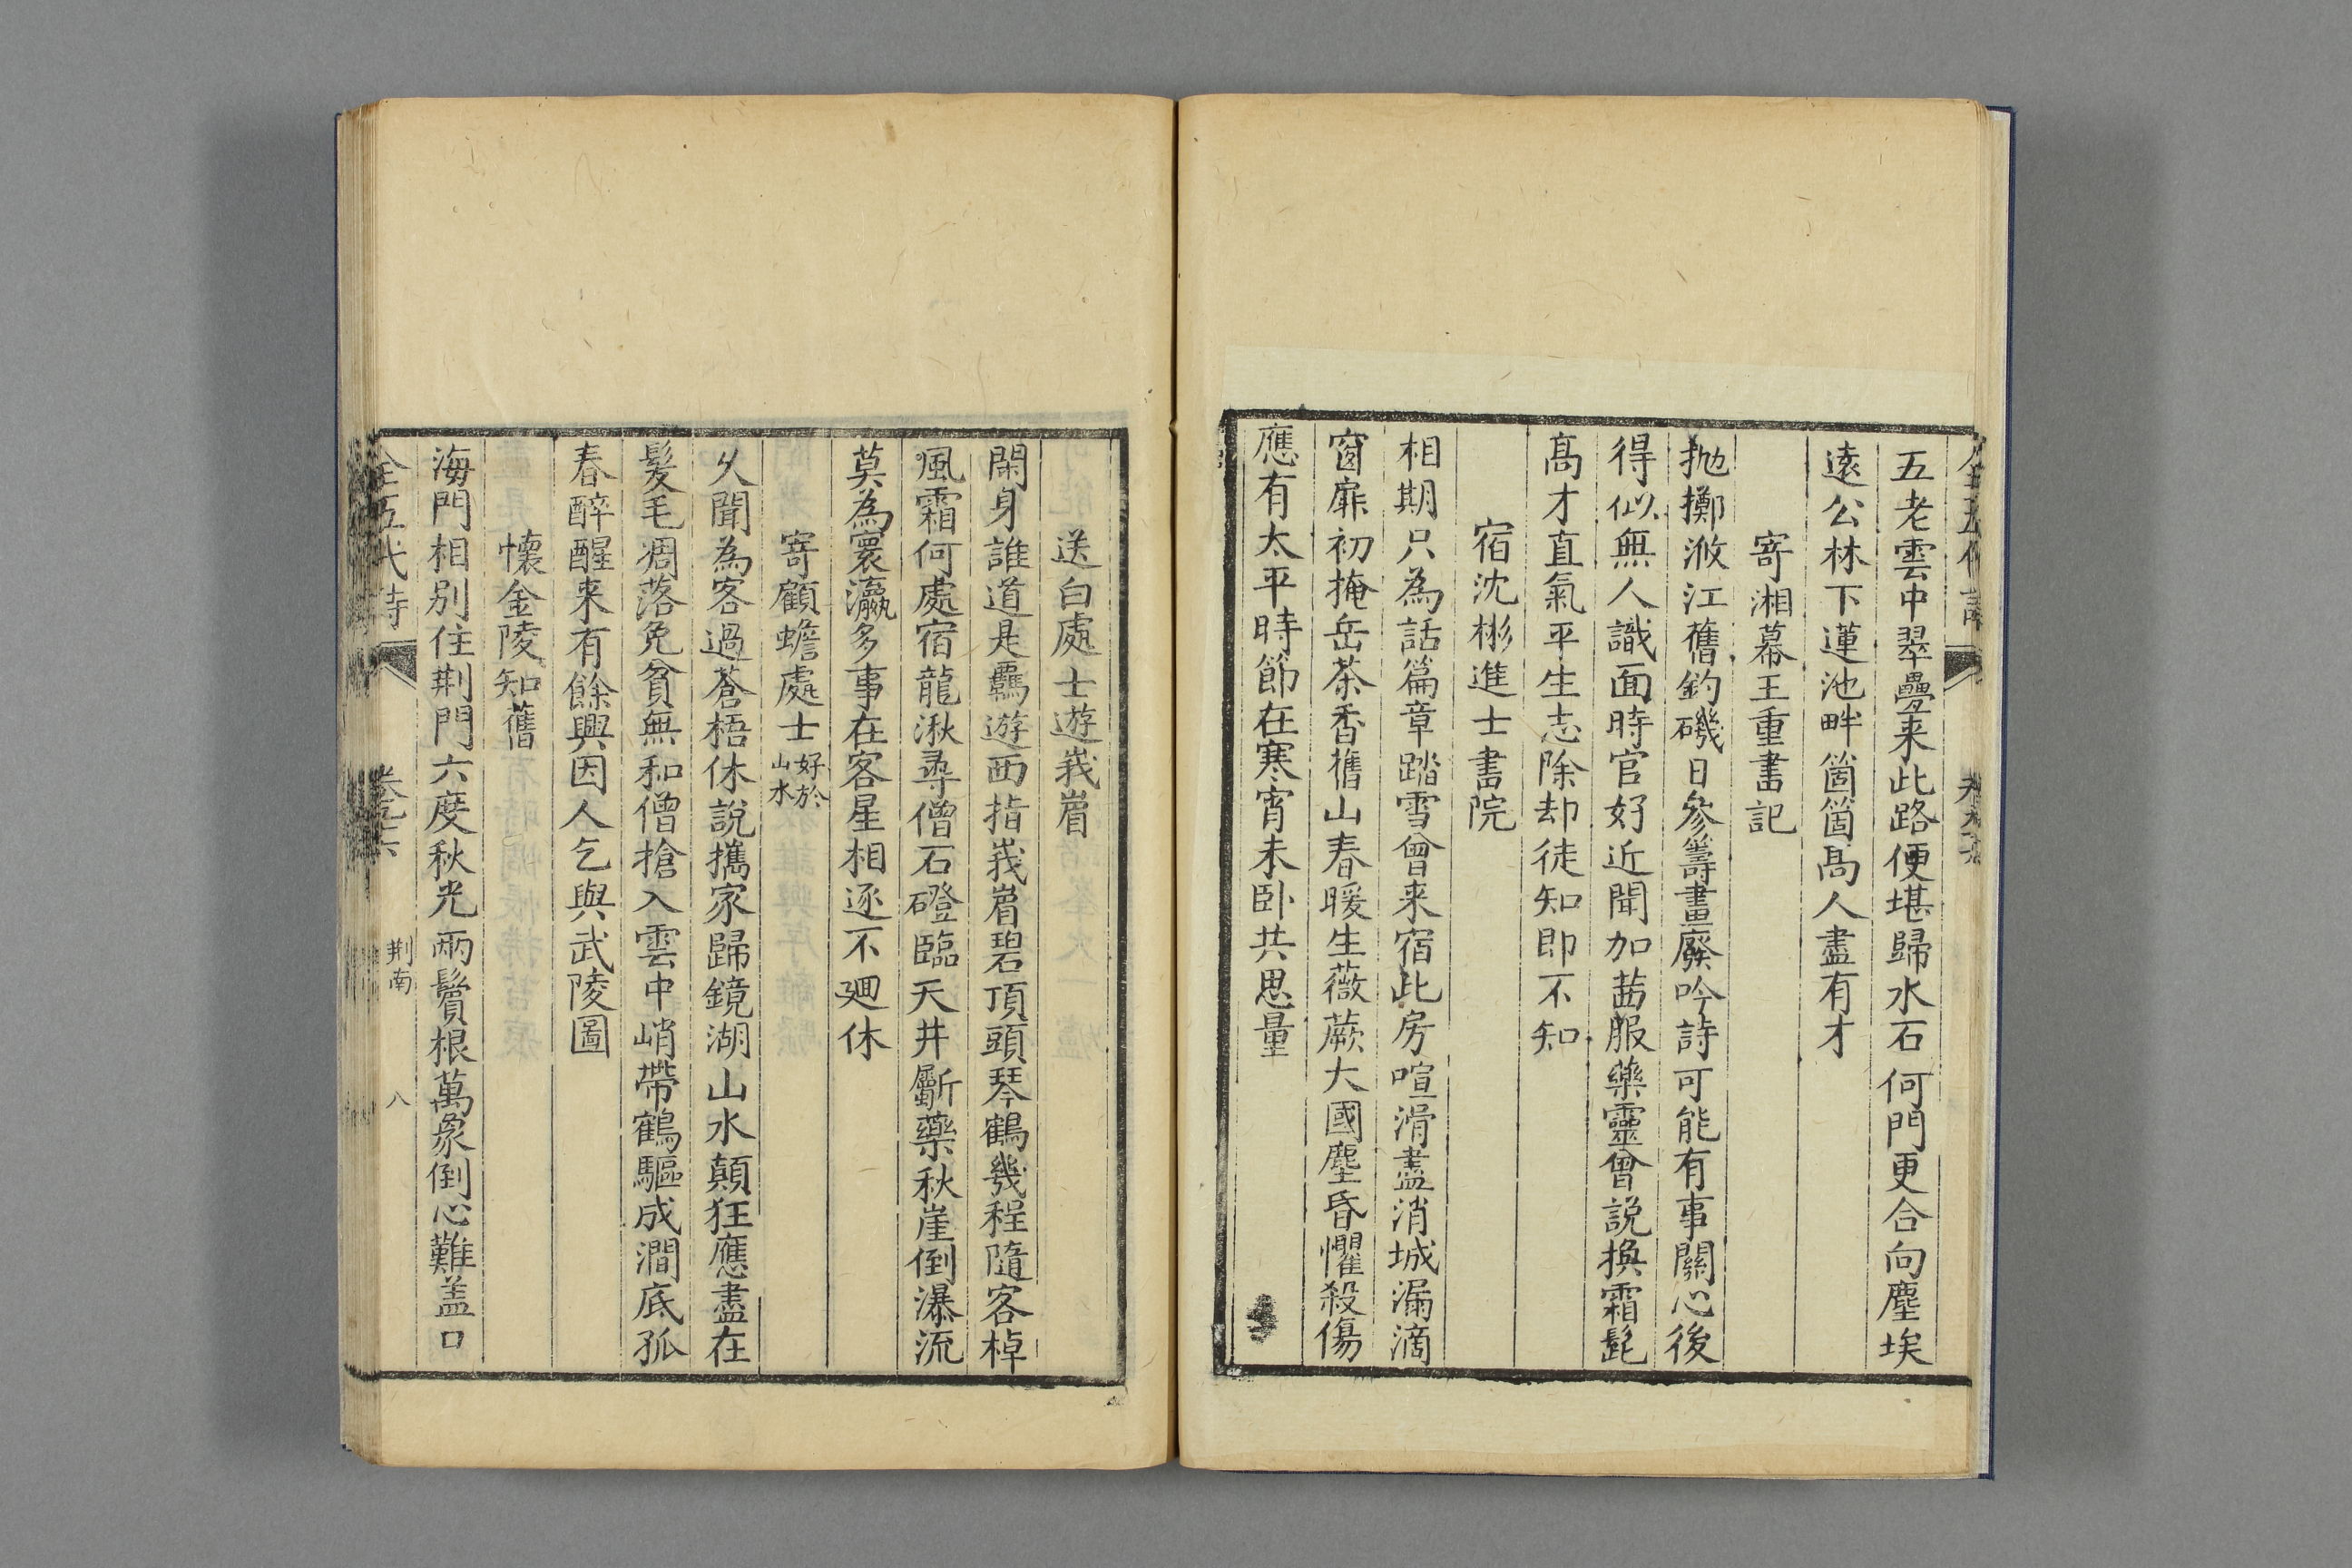 五老雲中翠疊来此路便堪歸水石何門更合向塵埃
遠公林下蓮池畔箇箇高人盡有才
寄湘幕王重書記
抛擲㳺江舊釣磯日參籌畫廢吟詩可能有事關心後
得似無人識面時官好近聞加茜服藥靈曾説換霜髭
高才直氣平生志除却徒知即不知
宿沈彬進士書院
相期只為話篇章踏雪曾来宿此房喧滑盡消城漏滴
窗扉初掩岳茶香舊山春暖生薇蕨大國塵昏懼殺傷
應有太平時節在寒宵未卧共思量
送白處士遊峩眉
閑身誰道是羈遊西指峩眉碧頂頭琴鶴幾程隨客棹
風霜何處宿龍湫尋僧石磴臨天井斸藥秋崖倒瀑流
莫為寰瀛多事在客星相逐不廻休
寄顧蟾處士好於山水
久聞為客過蒼梧休說攜家歸鏡湖山水顛狂應盡在
髪毛凋落免貧無和僧搶入雲中峭帶鶴驅成澗底孤
春醉醒来有餘興因人乞與武陵圖
懷金陵知舊
海門相別住荆門六度秋光兩鬢根萬象倒心難盖口
全五代詩
荆南
八